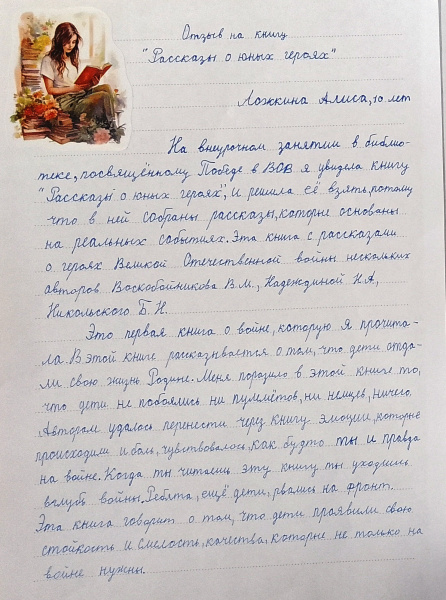 Отзыв на книгу
"Рассказы о юных героях"
Ложкина Алиса, 10 лет
На внеурочном занятии в библио-
теке, посвящённому Победе в ВОВ я увидела книгу
"Рассказы о юных героях", и решила её взять, потому
что в ней собраны рассказы, которые основаны
на реальных событиях. Эта книга с рассказами
о героях Великой Отечественной войны нескольких
авторов Воскобойникова В.М., Надеждиной Н.А.,
Никольского Б.Н.
Это первая книга о войне, которую я прочита-
ла. В этой книге рассказывается о том, что дети отда-
ли свою жизнь Родине. Меня поразило в этой книге то,
что дети не побоялись ни пулемётов, ни немцев, ничего.
Авторам удалось перенести через книгу эмоции, которые
происходили и боль, чувствовалось, как будто ты и правда
на войне. Когда ты читаешь эту книгу ты уходишь
вглубь войны. Ребята, ещё дети, рвались на фронт.
Эта книга говорит о том, что дети проявили свою
стойкость и смелость, качества, которые не только на
войне нужны.